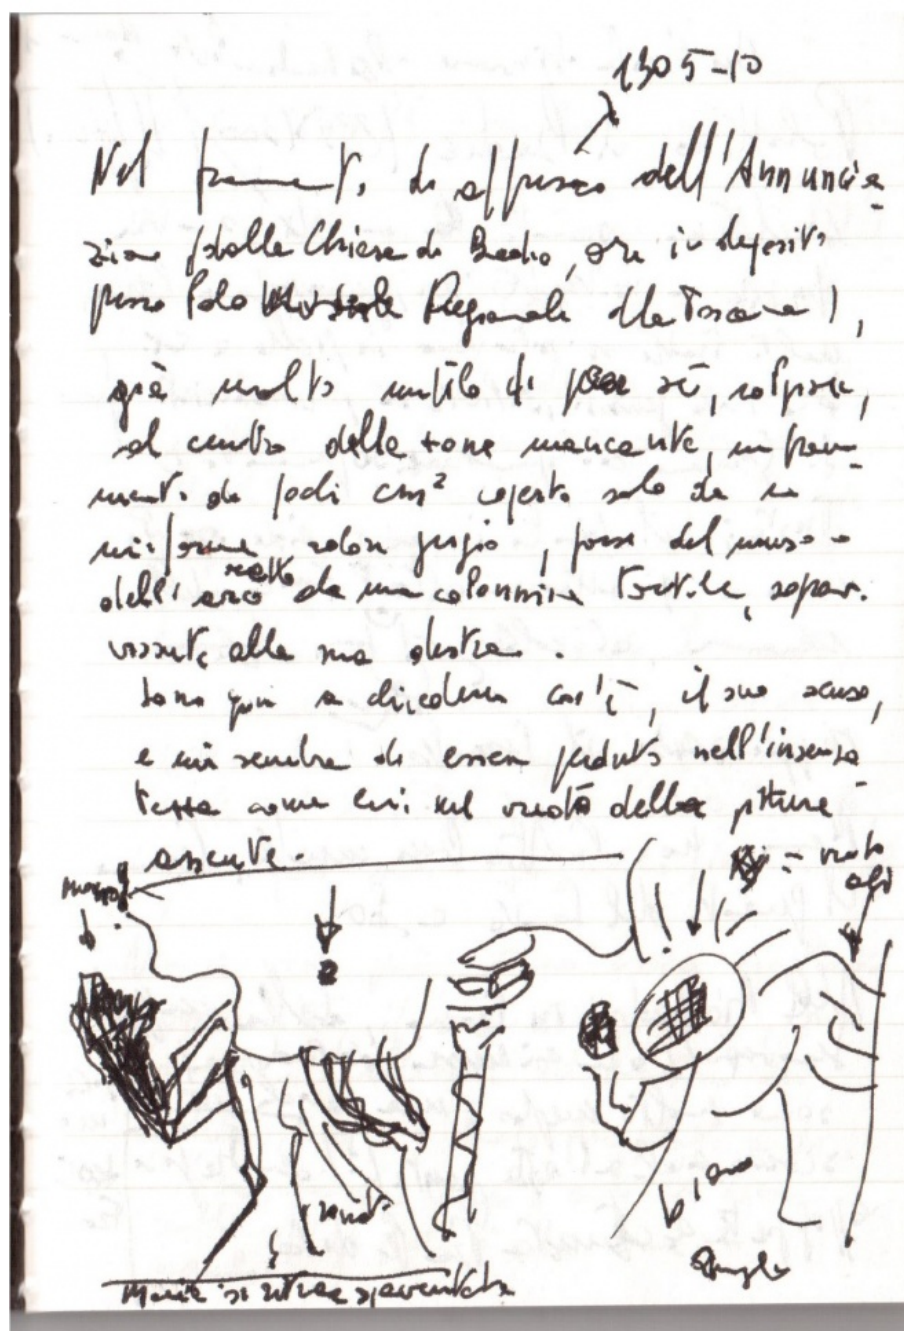 1305-10
Nel frammento di affresco dell'Annuncia-
zione (dalla Chiesa di         , ora in deposito
presso Polo Museale Regionale della Toscana),
già molto mutilo di per sé, colpisce,
al centro della zona mancante, un fram-
mento di pochi cm² coperto solo da un
uniforme color grigio, forse del muso o
dell'arco retto da una colonnina tortile, soprav-
vissuta alla sua destra.
Sono qui a chiedermi cos'è, il suo senso,
e mi sembra di essere perduto nell'insensa-
tezza come lui nel vuoto della pittura
assente.
vuoto
ali
vuoto
bianco
Angelo
Maria si ritrae spaventata